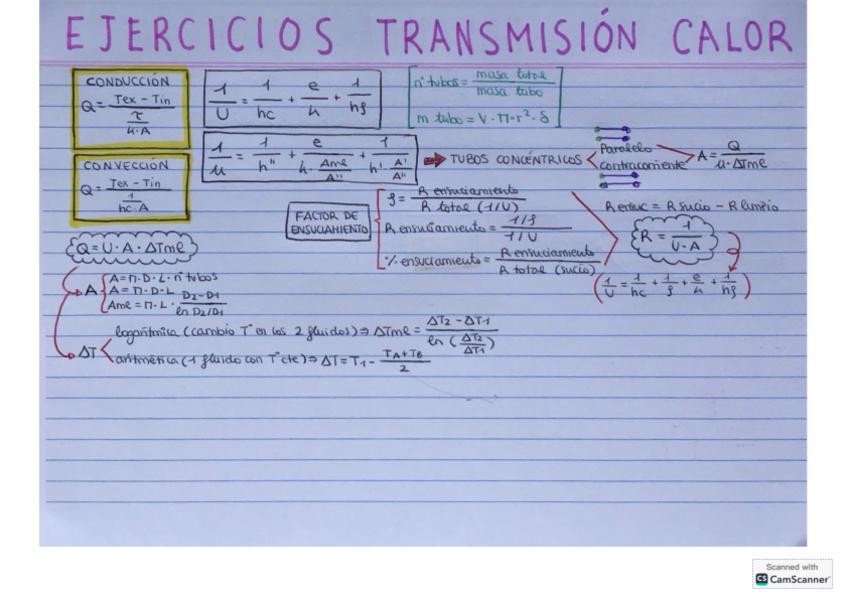 EJERCICIOS TRANSMISIÓN CALOR
CONDUCCIÓN
Q = Tex - Tin / (τ / k·A)
1/U = 1/hc + e/k + 1/hf
nº tubos = masa total / masa tubo
m tubo = V · π · r² · δ
CONVECCIÓN
Q = Tex - Tin / (1 / hc·A)
1/u = 1/h" + e / (k · Ame/A") + 1 / (h' · A'/A")
TUBOS CONCÉNTRICOS
Paralelo
contracorriente
A = Q / u·ΔTme
FACTOR DE ENSUCIAMIENTO
f = R ensuciamiento / R total (1/U)
R ensuciamiento = 1/f / 1/U
% ensuciamiento = R ensuciamiento / R total (sucio)
R ensuc = R sucio - R limpio
R = 1 / U·A
(1/U = 1/hc + 1/f + e/k + 1/hf)
Q = U·A·ΔTme
A
A = π·D·L·nº tubos
A = π·D·L
Ame = π·L· D2-D1 / ln D2/D1
ΔT
logarítmica (cambio Tª en los 2 fluidos) ⇒ ΔTme = ΔT2 - ΔT1 / ln (ΔT2/ΔT1)
aritmética (1 fluido con Tª cte) ⇒ ΔT = T1 - TA+TB / 2
Scanned with
CS CamScanner